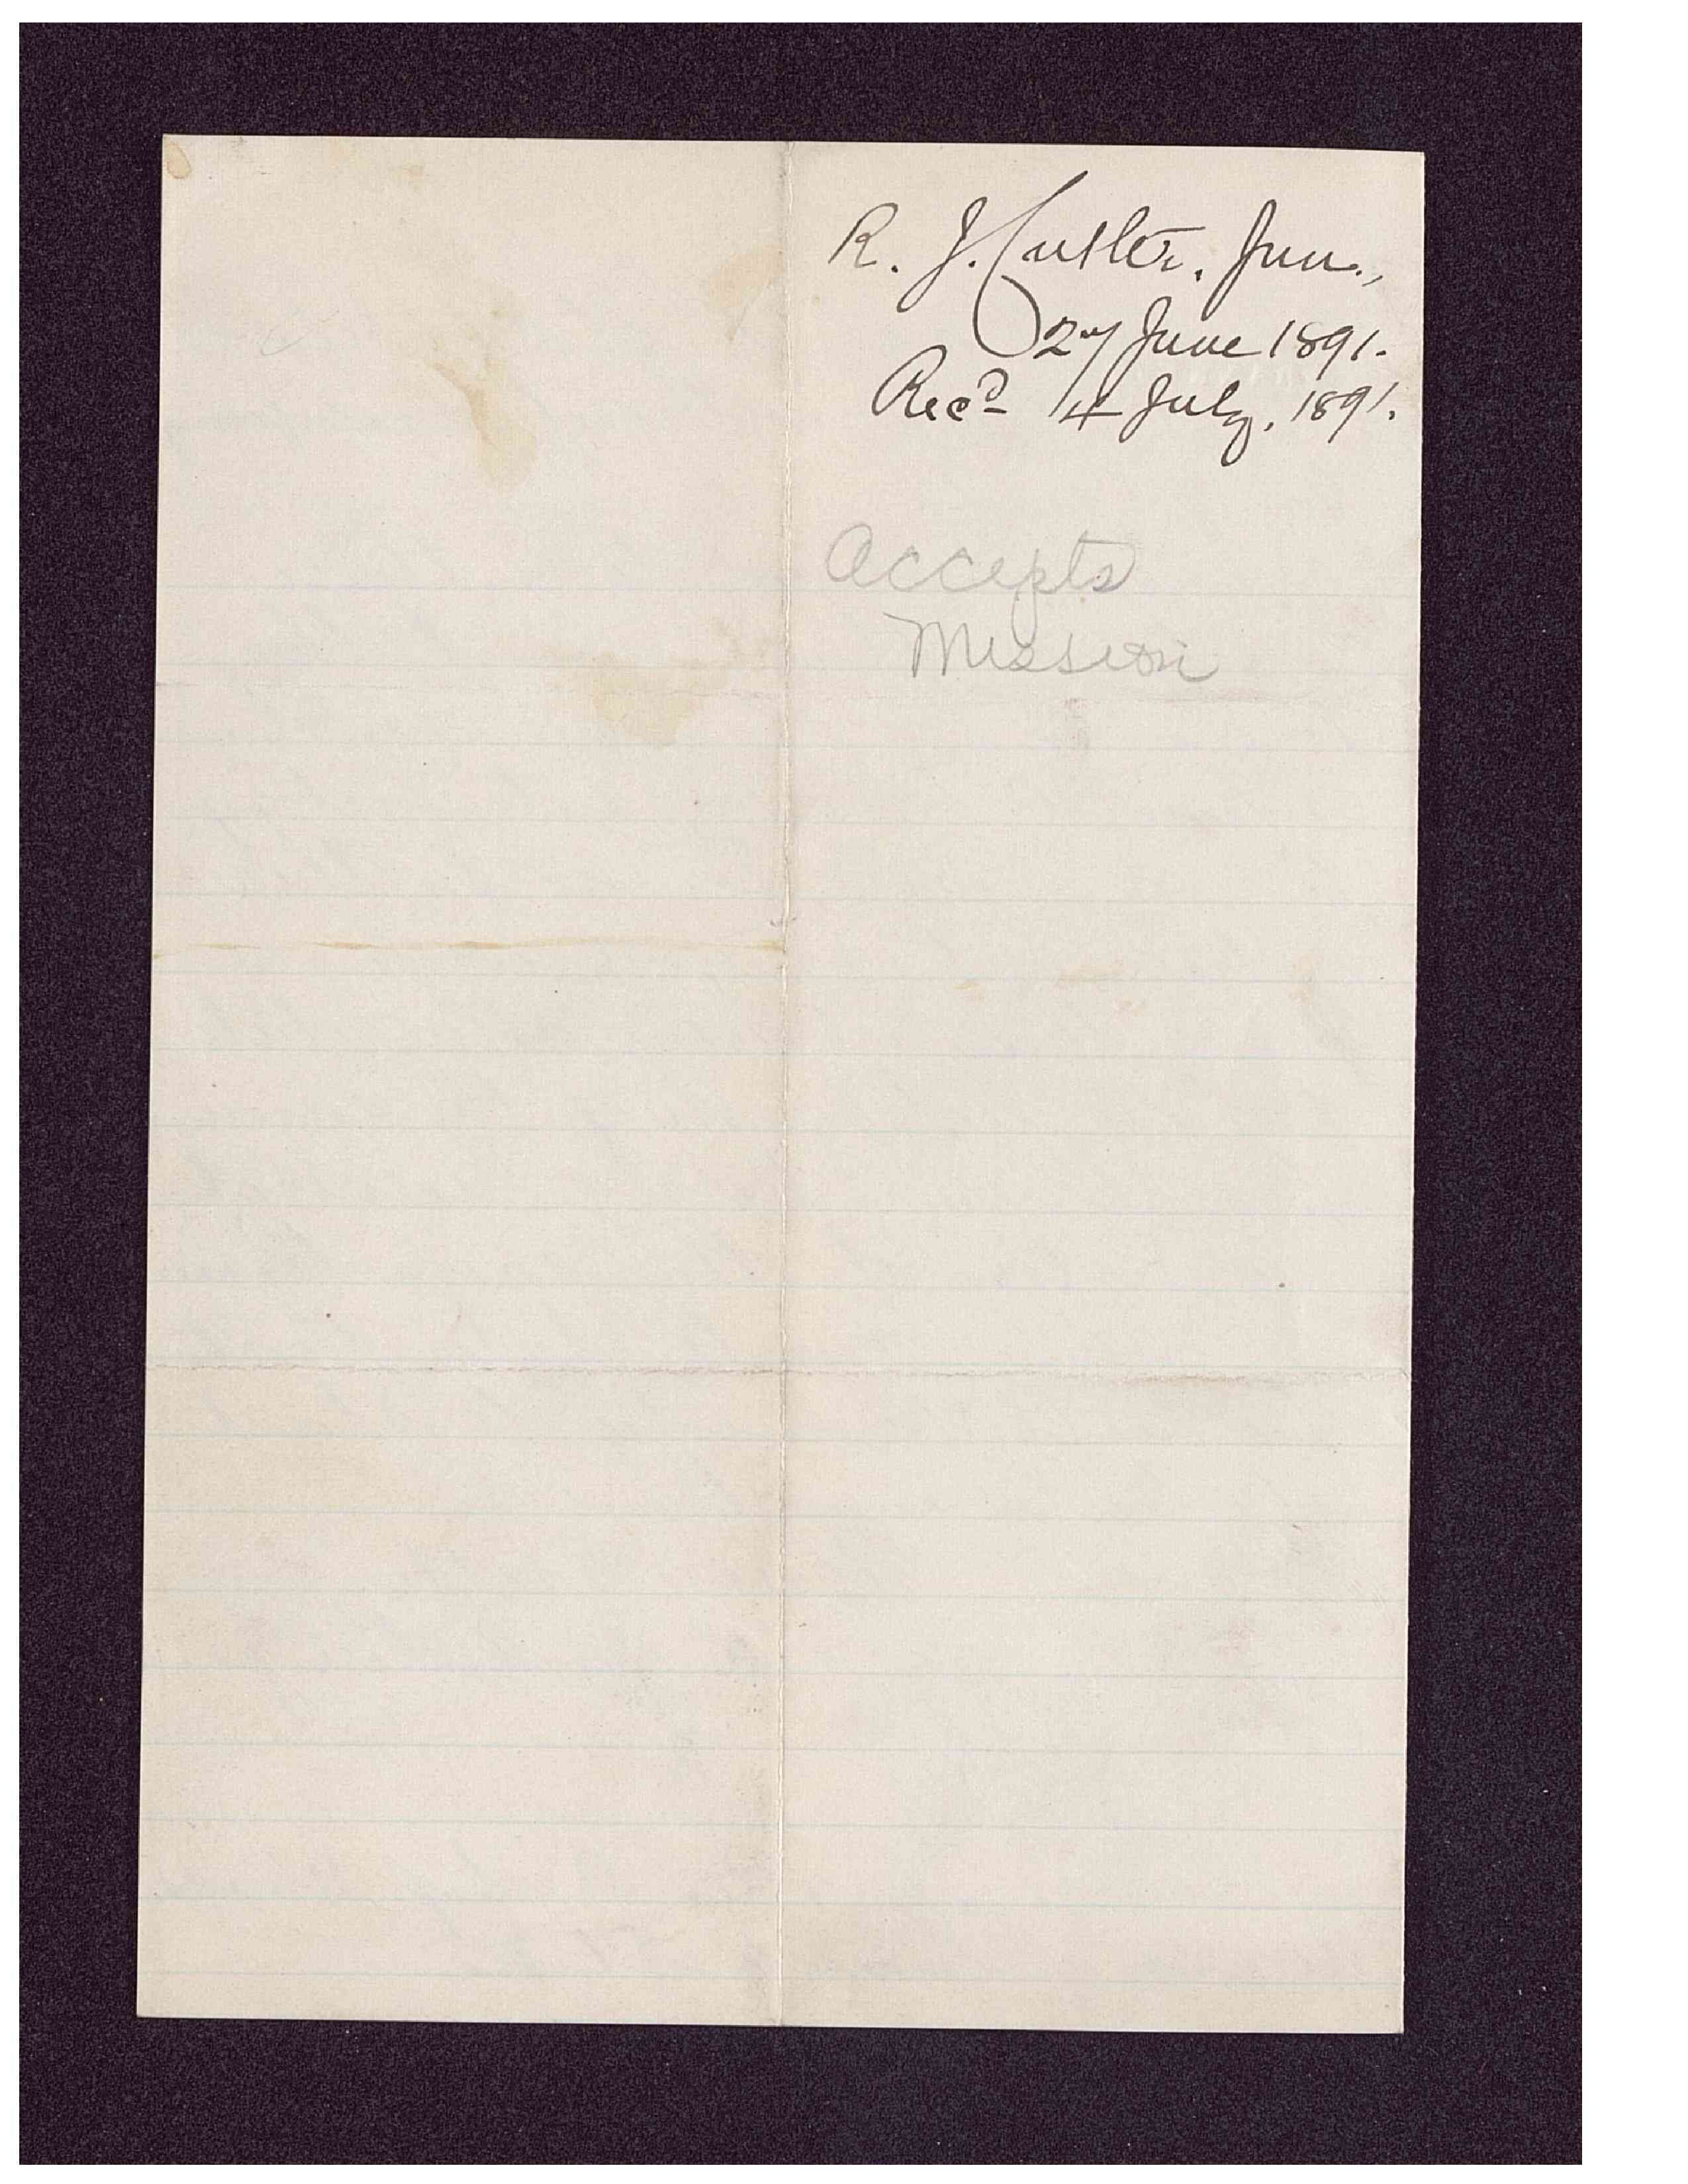 R. J. Cutler, Jun.,
27 June 1891.
Rec<sup>d</sup> 4 July, 1891.
Accepts
Mission